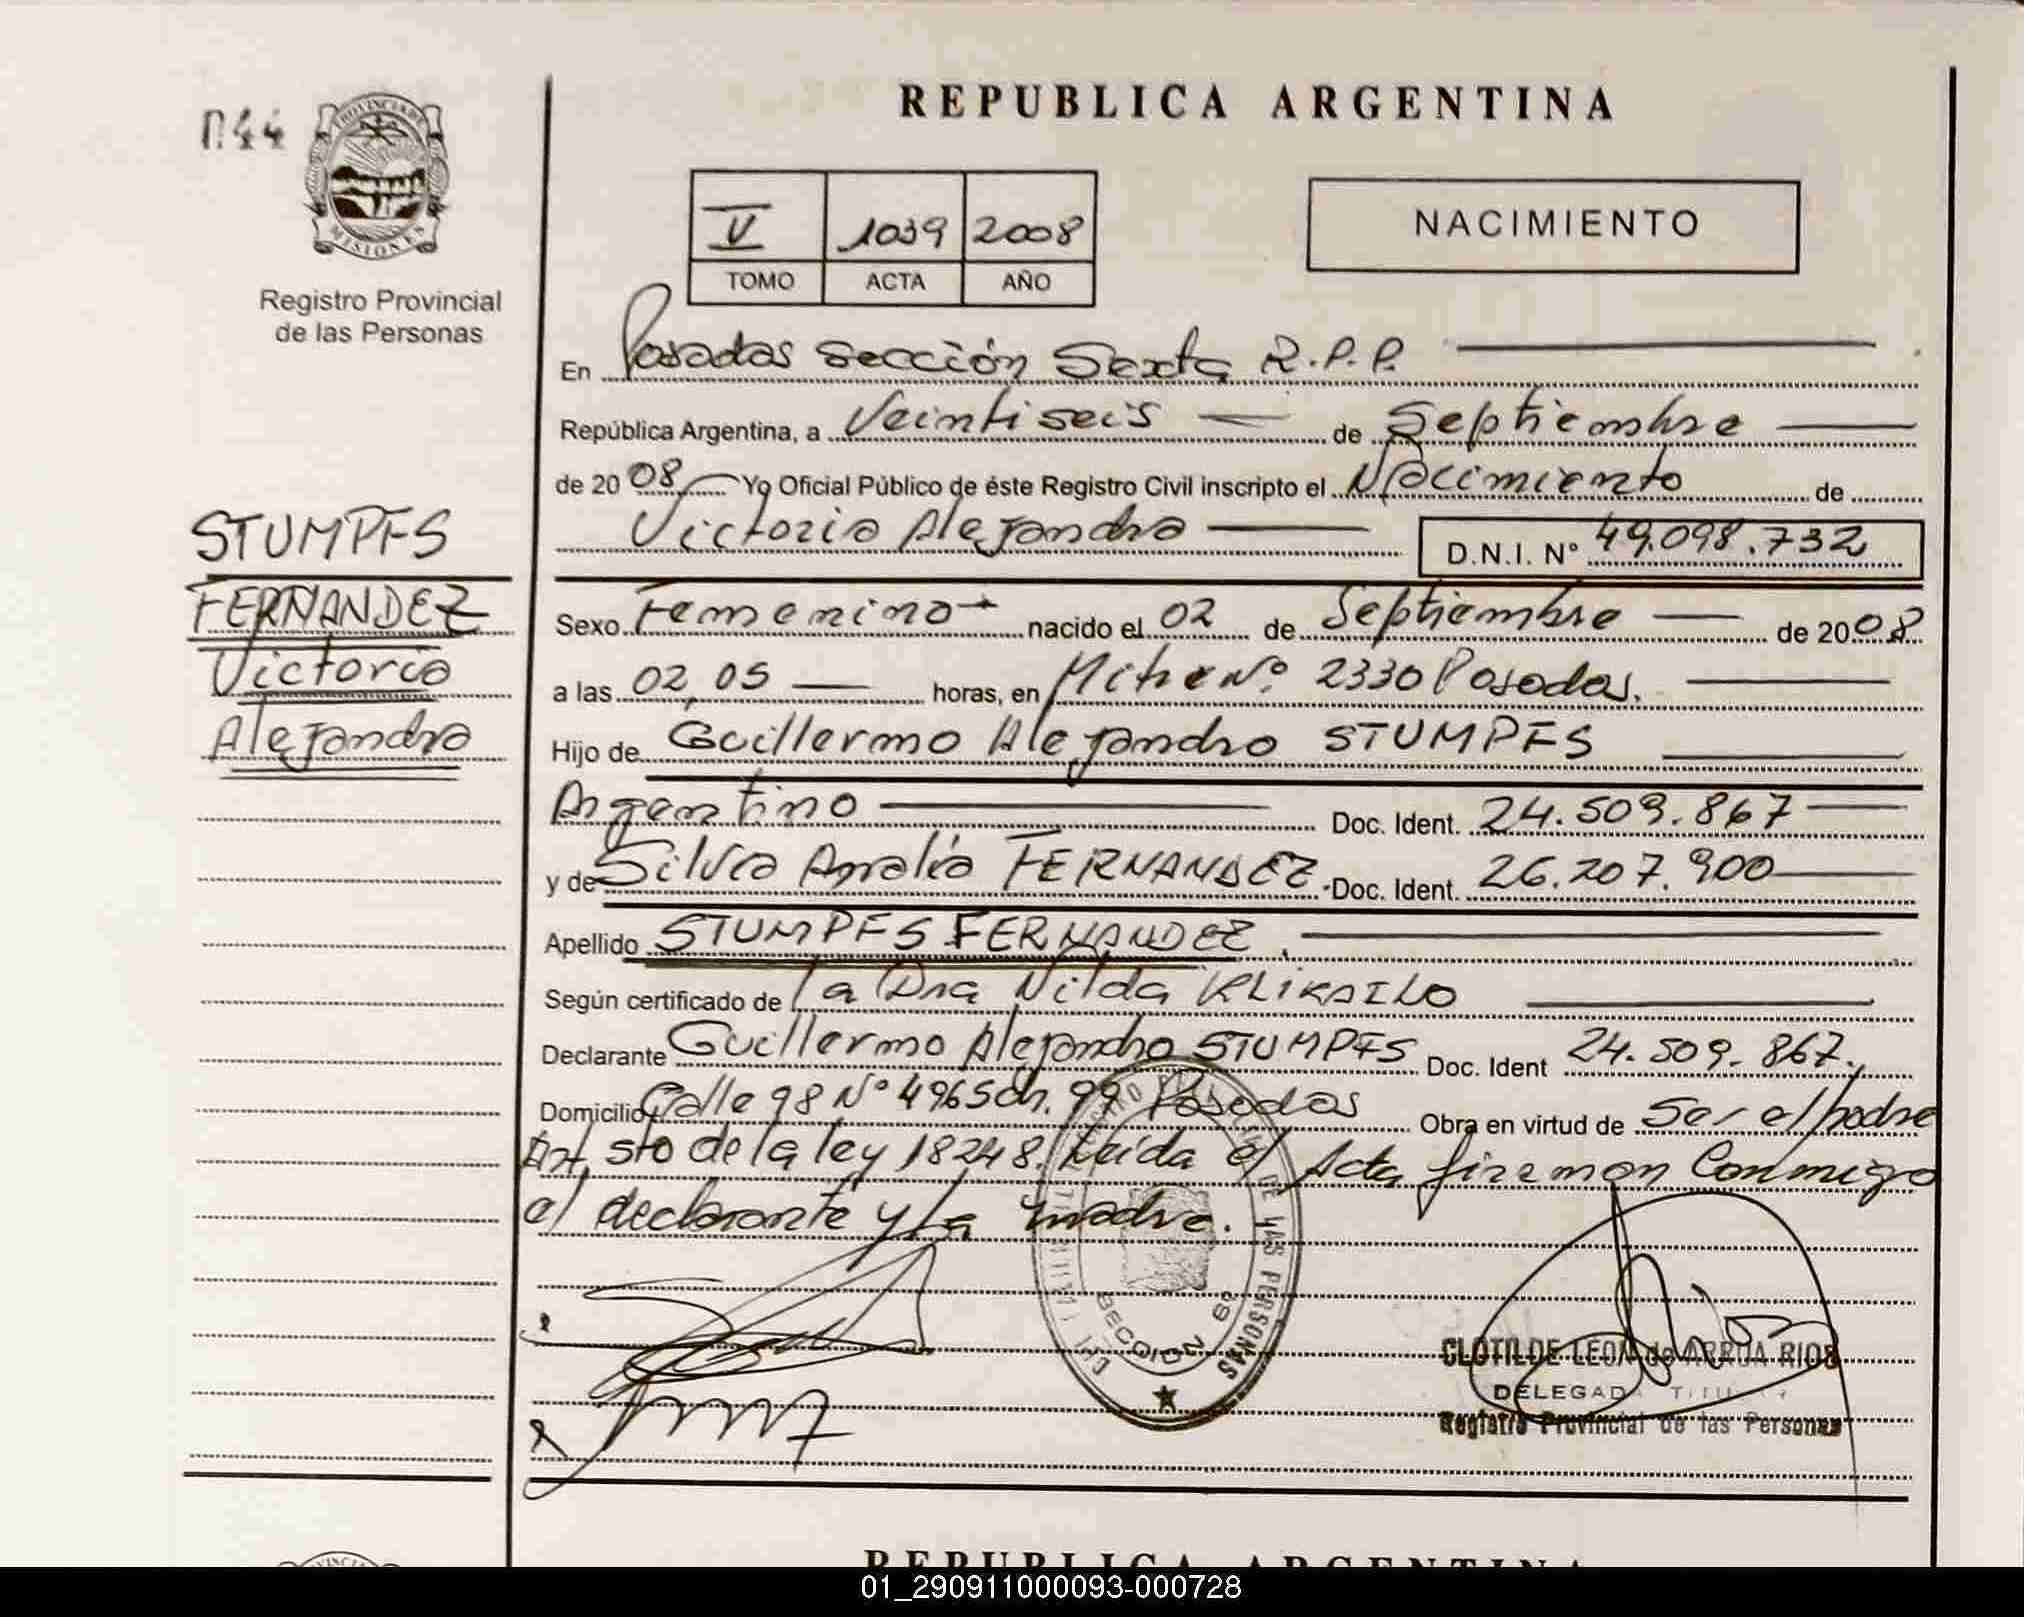 REPUBLICA ARGENTINA
PROVINCIA DE
MISIONES
Registro Provincial
de las Personas
V 1039 2008
TOMO ACTA AÑO
NACIMIENTO
En Posadas Sección Sexta R.P.P.
República Argentina, a Veintiseis de Septiembre
de 2008 Yo Oficial Público de éste Registro Civil inscripto el Nacimiento de
Victoria Alejandra D.N.I. Nº 49.098.732
STUMPFS
FERNANDEZ
Victoria
Alejandra
Sexo Femenino nacido el 02 de Septiembre de 2008
a las 02,05 horas, en Mitre Nº 2330 Posadas.
Hijo de Guillermo Alejandro STUMPFS
Argentino Doc. Ident. 24.509.867
y de Silvia Amalia FERNANDEZ Doc. Ident. 26.207.900
Apellido STUMPFS FERNANDEZ.
Según certificado de la Dra Nilda KLIKAILO
Declarante Guillermo Alejandro STUMPFS Doc. Ident 24.509.867.
Domicilio Calle 98 Nº 4965 ch. 99 Posadas Obra en virtud de Ser el padre
Art. 5to de la ley 18248. Leida el Acta firman Conmigo
el declarante y la madre.
DE LAS PERSONAS
SECCION 6ª
CLOTILDE LEON de ARRUA RIOS
DELEGADA TITULAR
Registro Provincial de las Personas
REPUBLICA ARGENTINA
01_290911000093-000728